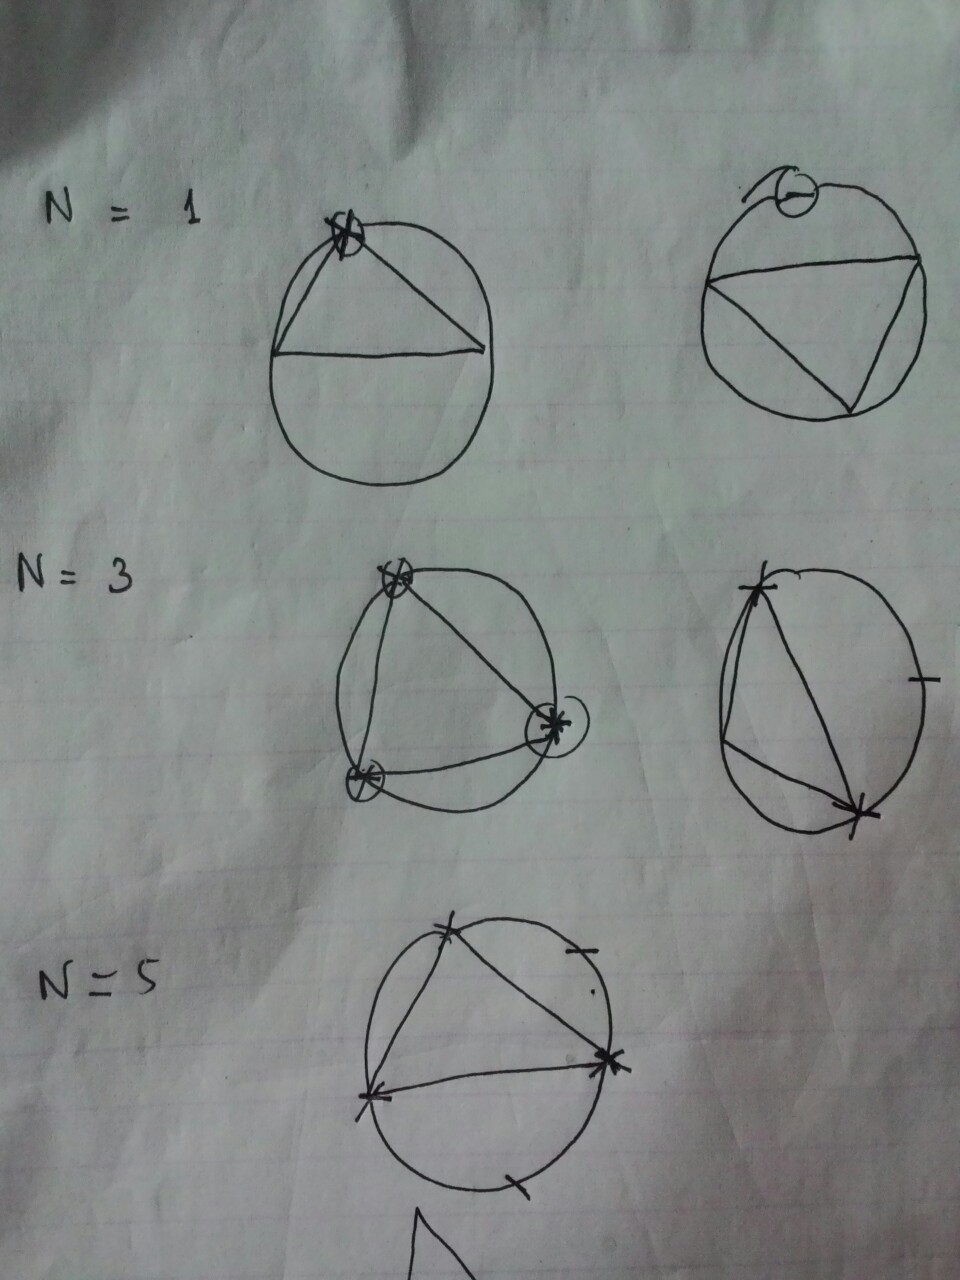 N = 1
N = 3
N = 5